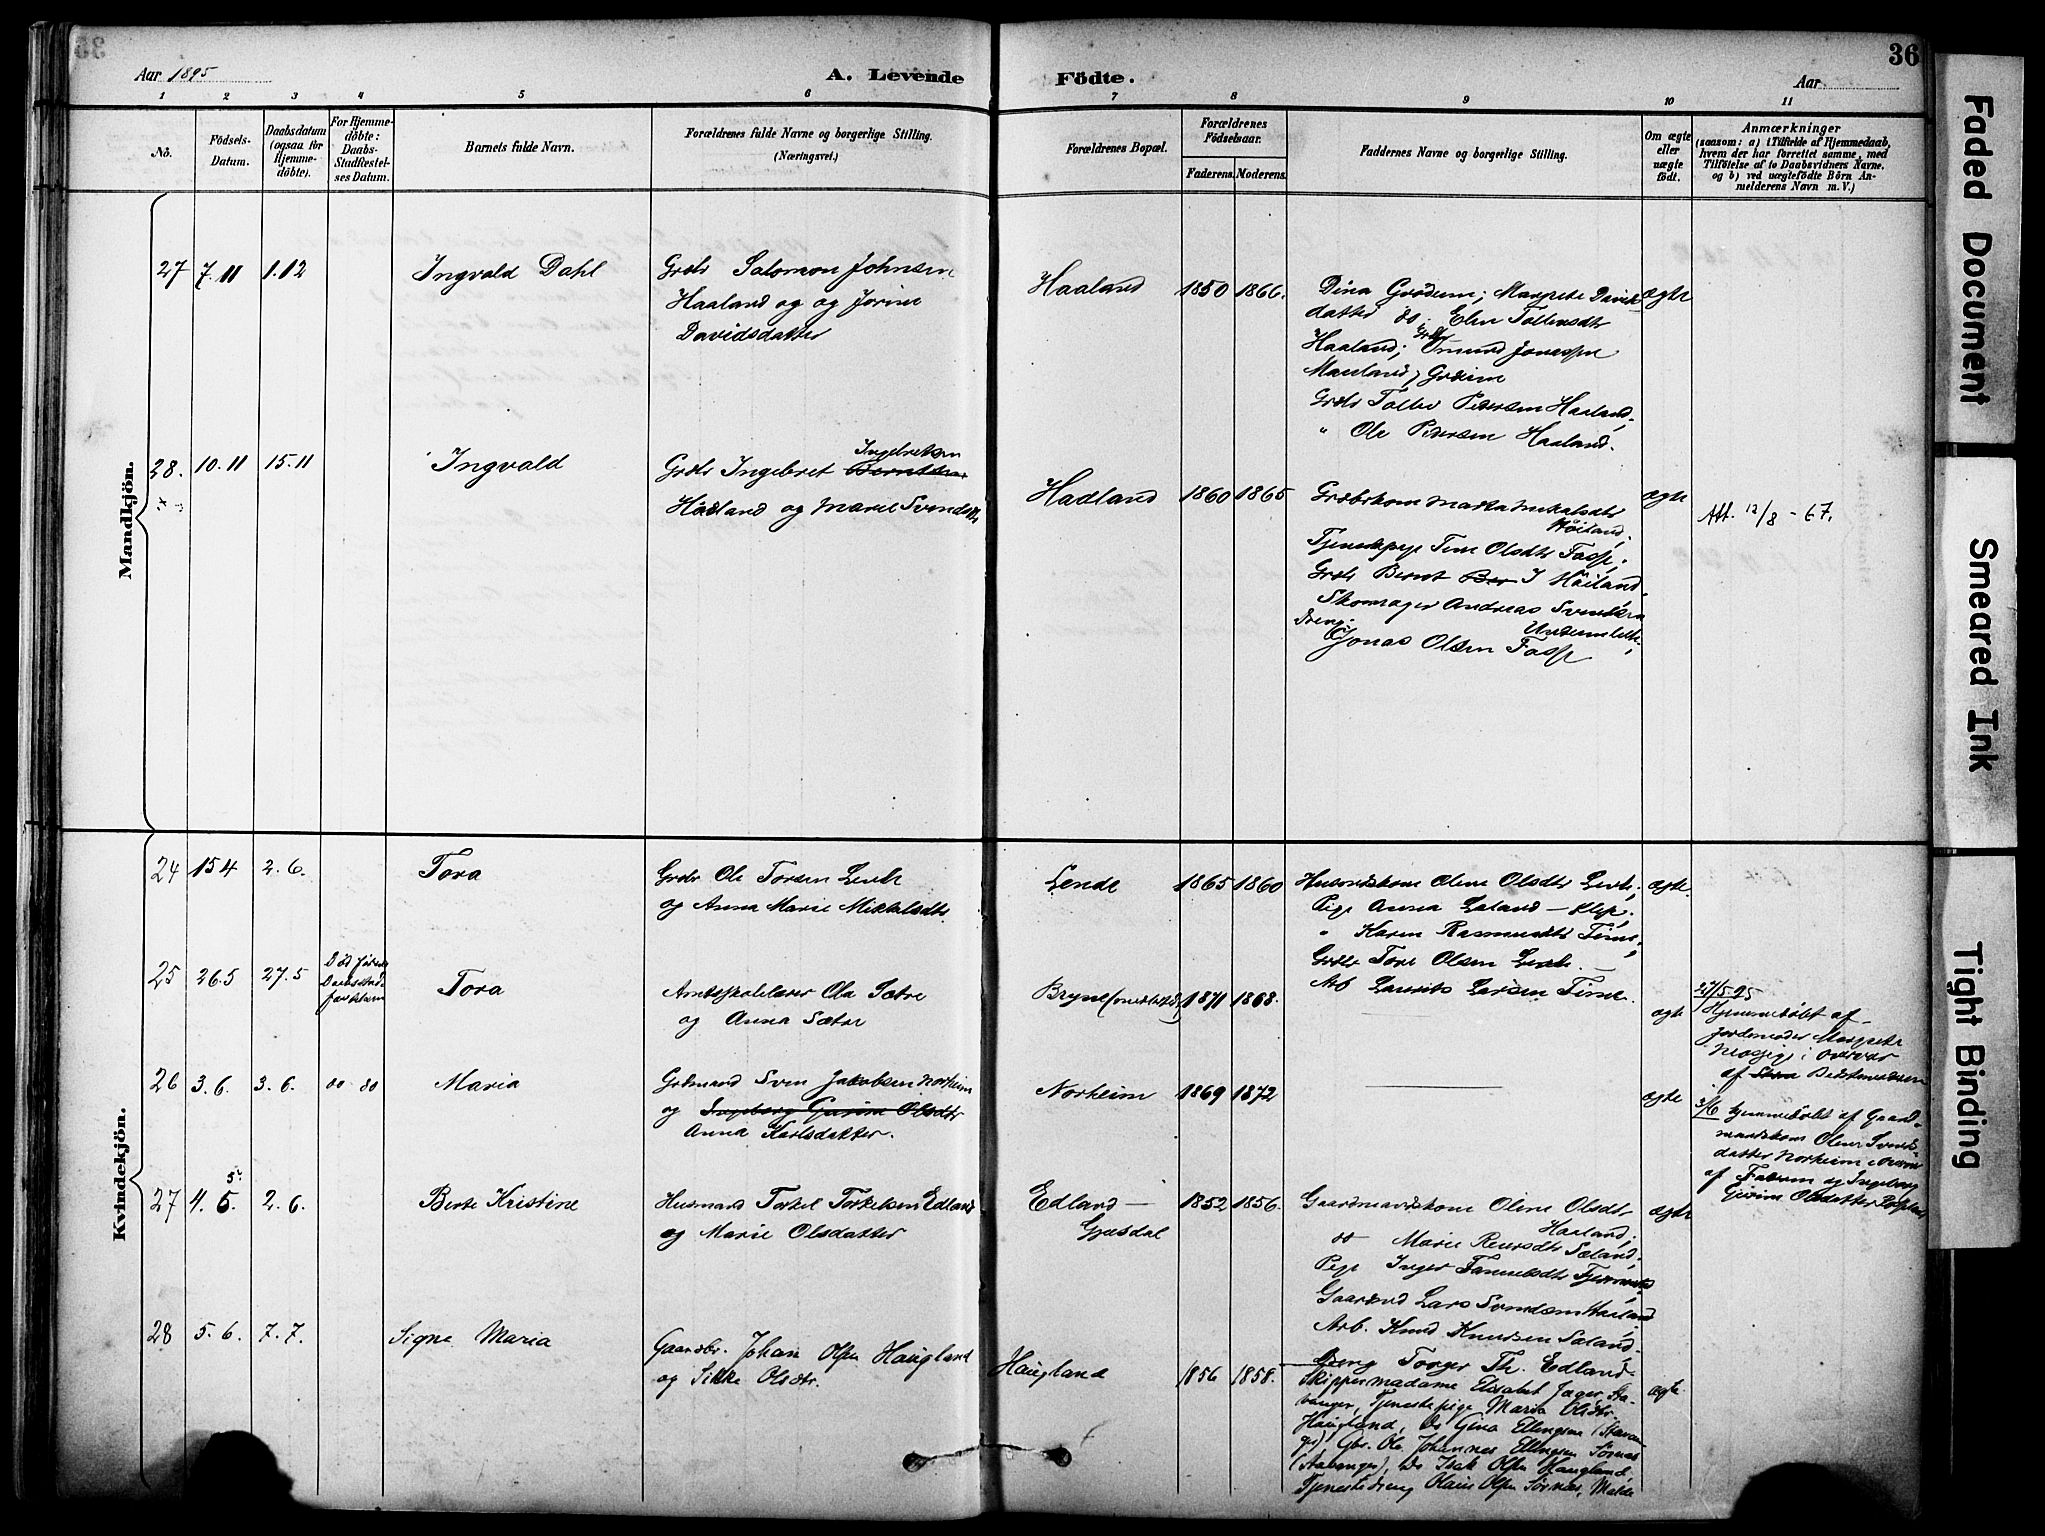 35
Aar 1895
A. Levende
Födte.
Aar
36
1 2 3 4 5 6 7 8 9 10 11
No.
Födsels-
Datum.
Daabsdatum
(ogsaa for
Hjemme-
döbte).
For Hjemme-
döbte:
Daabs-
Stadfæstel-
ses Datum.
Barnets fulde Navn.
Forældrenes fulde Navne og borgerlige Stilling.
(Næringsvei.)
Forældrenes Bopæl.
Forældrenes
Födselsaar.
Faderens. Moderens.
Faddernes Navne og borgerlige Stilling.
Om ægte
eller
uægte
födt.
Anmærkninger
(saasom: a) i Tilfælde af Hjemmedaab,
hvem der har forrettet samme, med
Tilföielse af to Daabsvidners Navne.
og b) ved uægtefödte Börn An-
melderens Navn m. V.)
Mandkjön.
27 7.11 1.12 Ingvald Dahl
Grdbr Salomon Johnsen
Haaland og og Jorine
Davidsdatter
Haaland 1850 1866.
Dina Grødem; Margrete Davids
datter do. Elen Tollevsdtr
Haaland; Grdbr Omund Jonassen
Mauland, Grødem
Grdbr Tollev Pedersen Haaland,
" Ole Pedersen Haaland.
ægte
28. 10.11 15.11 Ingvald
Grdbr Ingebret Ingebretsen
Haaland og Marie Svendsdtr
Haaland 1860 1865
Grdbrkone Marta Mikalsdtr
Høiland;
Tjenestepige Tine Olsdtr Fosse,
Grdbr Bernt Ber I Høiland.
Skomager Andreas Svendsen
Undemlille,
Dreng Jonas Olsen Fosse
ægte
Att. 12/8 - 67.
Kvindekjön.
24 15 4 2.6. Tora
Grdbr Ole Torsen Lende
og Anna Marie Mikkalsdtr
Lende 1865 1860
Husmdskone Oline Olsdtr Lende,
Pige Anna Laland - Klep,
" Karen Rasmusdtr Time,
Grdbr Tore Olsen Lende.
Arb Laurits Larsen Time.
ægte
25 26.5 27.5
Død før
Daabsstad-
fæstelsen
Tora
Amtsskolelærer Ola Sætre
og Anna Sætre
Bryne 1871 1868.
ægte
27/5 95
Hjemmedøbt af
Jordemoder Margrete
i Overvær
af Bedstemoderen
26 3.6. 3.6. do do Maria
Grdmand Sven Jakobsen Norheim
og Ingeborg Gurine Olsdtr
Anna Karlsdatter.
Norheim 1869 1872
ægte
3/6 hjemmedøbt af Gaard-
mandskone Oline Svends-
datter Norheim i Overvær
af Faderen og Ingeborg
Gurine Olsdatter
27 4.5. 2.6. Berte Kristine
Husmand Torkel Torkelsen Edland
og Marie Olsdatter
Edland -
Gjesdal
1852 1856.
Gaardmandskone Oline Olsdt
Haaland;
do Marie Reiersdtr Sæland,
Pige Inger
Gaardmd Lars Svendsen Haaland
Arb. Knud Knudsen Sæland.
Dreng Torger Th. Edland
ægte
28 5.6. 7.7. Signe Maria
Gaardbr. Johan Olsen Haugland
og Sikke Olsdtr.
Haugland 1856 1858.
Skippermadame Elisabet Jager, Sta-
vanger, Tjenestepige Maria Olsdtr
Haugland, Do Gina Ellingsen (Stavan-
ger), Gbr. Ole Johannes Ellingsen Sørnes
(Stavanger), Do Isak Olsen Haugland
Tjenestedreng Olaus Olsen Sørnes, Malde
ægte
Faded Document
Smeared Ink
Tight Binding